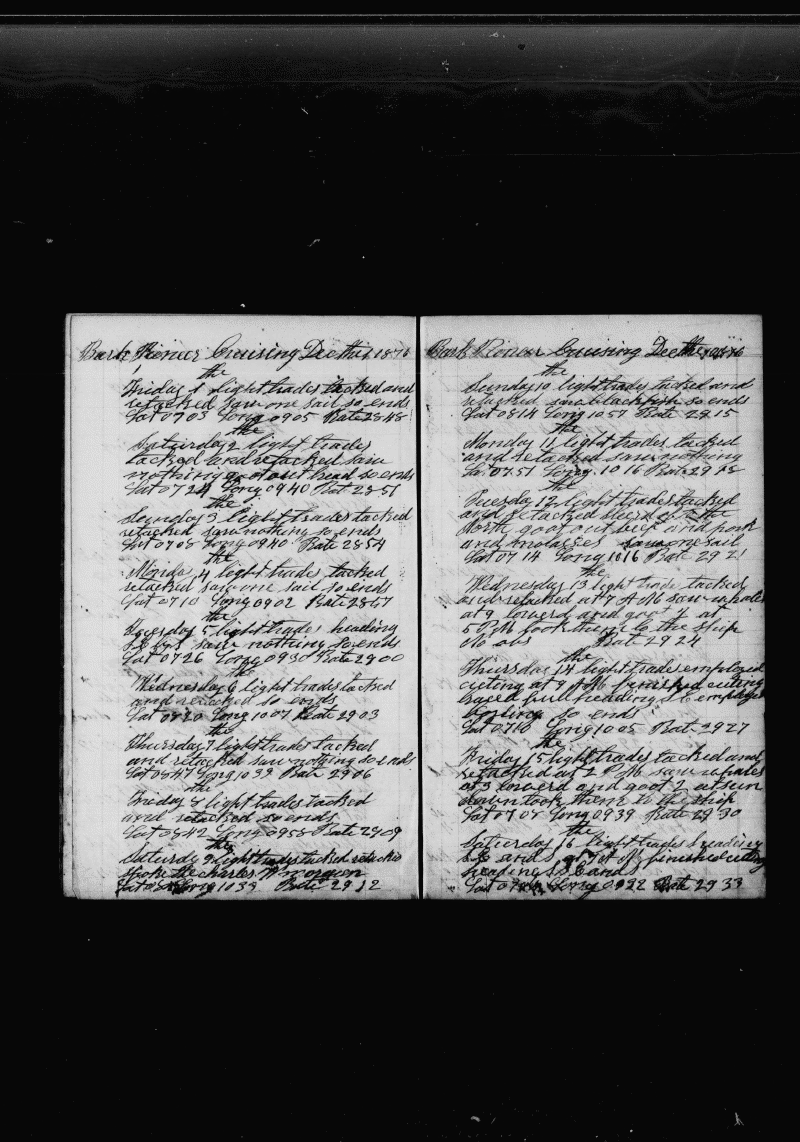 Bark Pioneer Cruising Dec the 1 1876
the
Friday 1 light trades tacked and
retacked saw one sail so ends
Lat 07 03 Long 09 05 Rate 28 48
the
Saturday 2 light trades
tacked and retacked saw
nothing goot out bread so ends
Lat 07 24 Long 09 40 Rat 28 51
the
Sounday 3 light trades tacked
retacked saw nothing so ends
Lat 07 08 Long 09 40 Rate 28 54
the
Monda 4 light trades tacked
retacked saw one sail so ends
Lat 07 10 Long 09 02 Rate 28 57
the
Tuesday 5 light trades heading
saw nothing so ends
Lat 07 26 Long 09 30 Rate 29 00
the
Wednesday 6 light trades tacked
and retacked so ends
Lat Long 10 07 Rate 29 03
the
Thursday 7 light trades tacked
and retacked saw nothing so ends
Lat 08 47 Long 10 39 Rate 29 06
the
Friday 8 light trades tacked
and retacked so ends
Lat 08 42 Long 09 58 Rate 29 09
the
Saturday 9 light trades tacked retacked
spoke the charles W morgien
Long 10 33 Rate 29 12
Bark Pioneer Cruising Dec the 10 1876
the
Sounday 10 light trades tacked and
retacked saw blackfish so ends
Lat 08 14 Long 10 57 Rate 29 15
the
Monday 11 light trades tacked
and retacked saw nothing
Lat 07 51 Long 10 16 Rat 29 18
the
Tuesday 12 light trades tacked
and retacked the
North goot out beef and pork
and molasses saw one sail
Lat 07 14 Long 10 16 Rat 29 21
the
Wednesday 13 light trade tacked
and retacked at 7 A M saw whales
at 9 lowerd and goot 2 at
5 P M took them to the ship
No obs Rate 29 24
the
Thursday 14 light trades employed
cuting at 9 A M finished cuting
heading S E employed
boiling So ends
Lat 07 10 Long 10 05 Rate 29 27
the
Friday 15 light trades tacked and
retacked at 2 P M saw whales
at 3 lowerd and goot 2 at sun
down took them to the ship
Lat 07 07 Long 09 39 Rate 29 30
the
Saturday 16 light trades heading
S E and S at 9 A M finished cuting
heading S So ends
Long 09 32 Rate 29 33